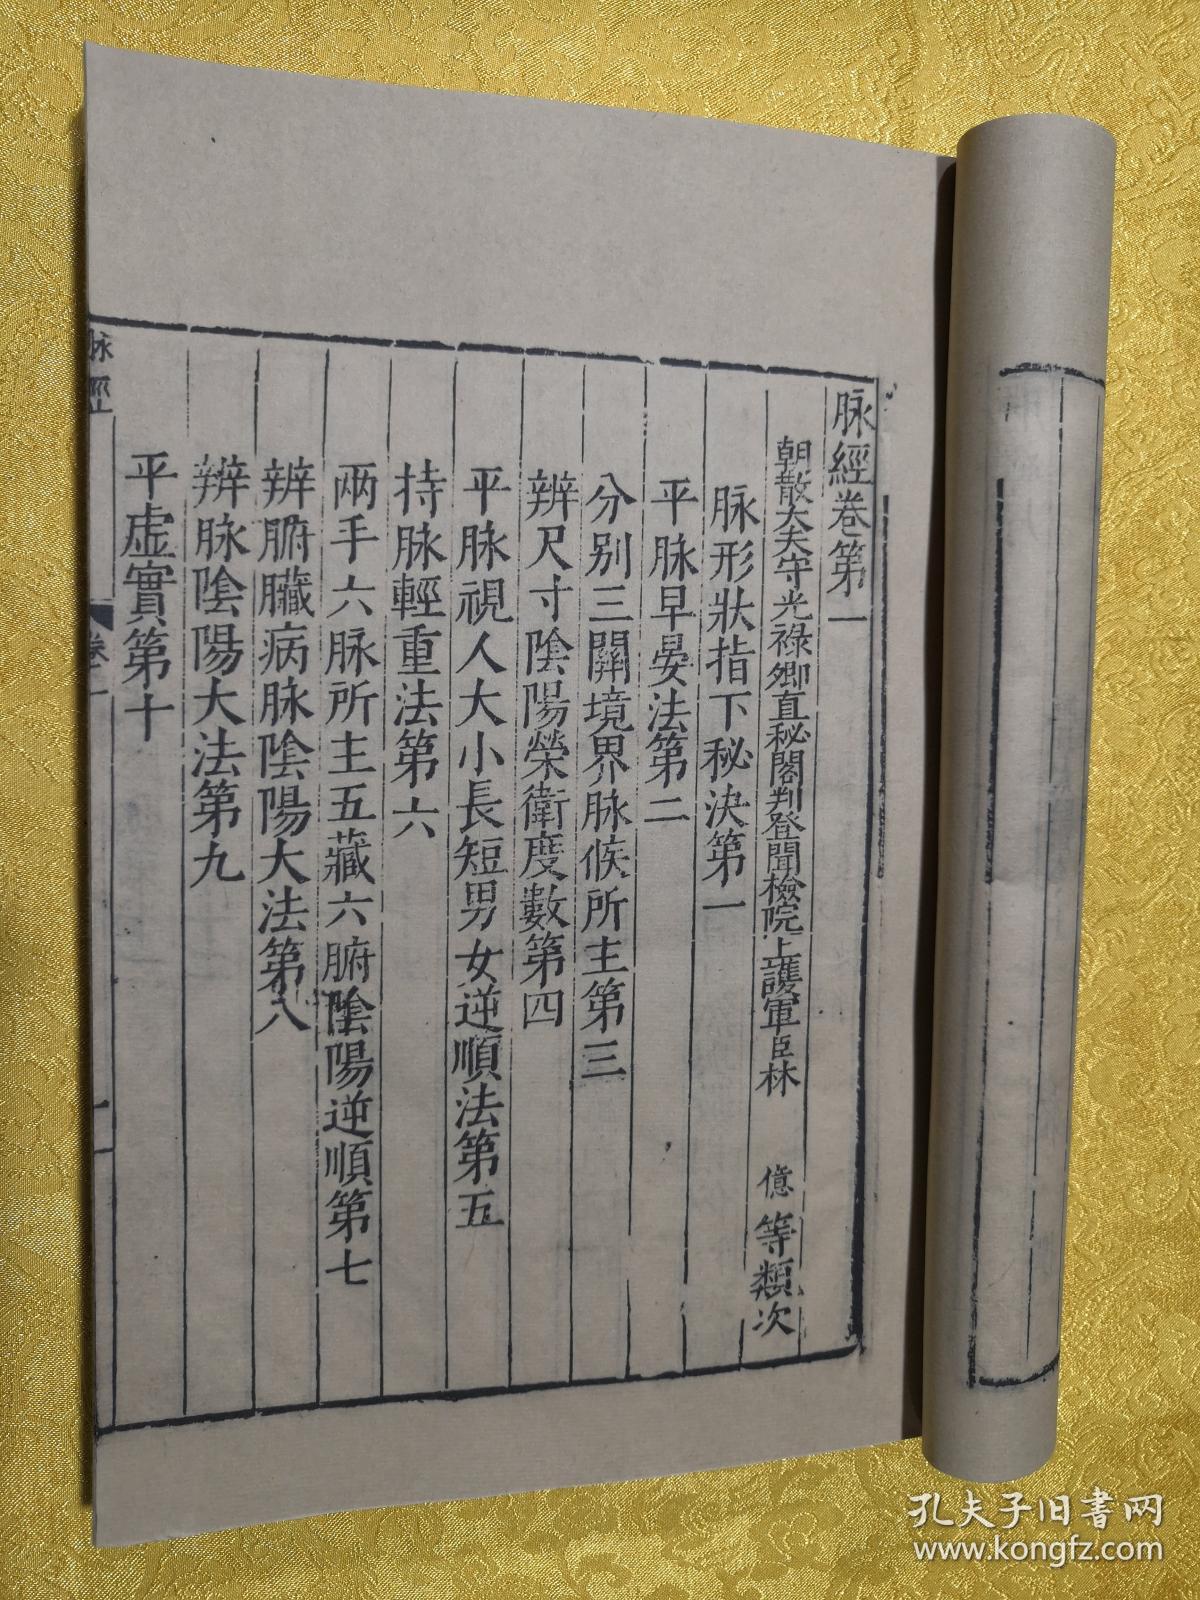 脉經卷第一
朝散大夫守光祿卿直秘閣判登聞檢院上護軍臣林 億等類次
脉形狀指下秘決第一
平脉早晏法第二
分别三關境界脉候所主第三
辨尺寸陰陽榮衛度數第四
平脉視人大小長短男女逆順法第五
持脉輕重法第六
兩手六脉所主五藏六腑陰陽逆順第七
辨腑臟病脉陰陽大法第八
辨脉陰陽大法第九
平虚實第十
脉經
卷一
一
孔夫子旧書网
www.kongfz.com